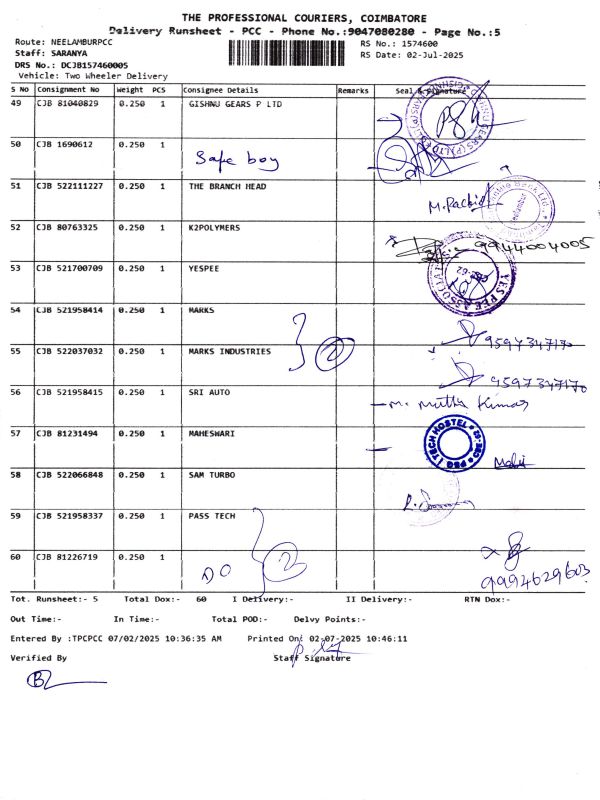 THE PROFESSIONAL COURIERS, COIMBATORE
Delivery Runsheet - PCC - Phone No.:9047080280 - Page No.:5
Route: NEELAMBURPCC
Staff: SARANYA
DRS No.: DCJB157460005
Vehicle: Two Wheeler Delivery
RS No.: 1574600
RS Date: 02-Jul-2025
S No Consignment No Weight PCS Consignee Details Remarks Seal & Signature
49 CJB 81040829 0.250 1 GISHNU GEARS P LTD
50 CJB 1690612 0.250 1 Safe boy
51 CJB 522111227 0.250 1 THE BRANCH HEAD
52 CJB 80763325 0.250 1 K2POLYMERS 9944004005
53 CJB 521700709 0.250 1 YESPEE
YES PEE ASSOCIATES
54 CJB 521958414 0.250 1 MARKS 9597347170
55 CJB 522037032 0.250 1 MARKS INDUSTRIES 2 9597347170
56 CJB 521958415 0.250 1 SRI AUTO M. Muthu Kumar
57 CJB 81231494 0.250 1 MAHESWARI
PSG iTECH HOSTEL * CBE-62 *
58 CJB 522066848 0.250 1 SAM TURBO
59 CJB 521958337 0.250 1 PASS TECH
60 CJB 81226719 0.250 1 DO 2 9994629603
Tot. Runsheet:- 5 Total Dox:- 60 I Delivery:- II Delivery:- RTN Dox:-
Out Time:- In Time:- Total POD:- Delvy Points:-
Entered By :TPCPCC 07/02/2025 10:36:35 AM Printed On: 02-07-2025 10:46:11
Verified By Staff Signature